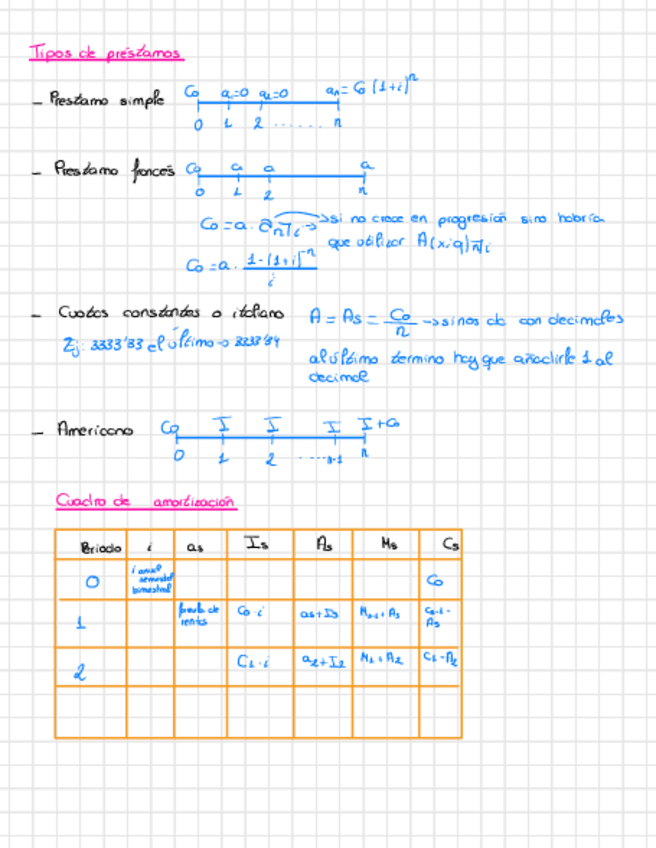 Tipos de préstamos
- Prestamo simple C0 a=0 a2=0 an= C0 (1+i)^n
0 1 2 ...... n
- Prestamo francés C0 a a a
0 1 2 n
C0 = a · an¬i → si no crece en progresión sino habría
que utilizar A(x;q)n¬i
C0 = a · 1-(1+i)^-n / i
- Cuotas constantes o italiano A = As = C0/n → si nos da con decimales
Ej: 3333'33 el último → 3333'34
al último termino hay que añadirle 1 al
decimal
- Americano C0 I I I I+C0
0 1 2 ....n-1 n
Cuadro de amortización
Periodo i as Is As Ms Cs
0 i anual semestral bimestral C0
1 formula de rentas C0·i as+Is Ms-1+As Cs-1-As
2 C1·i a2+I2 M1+A2 C1-A2